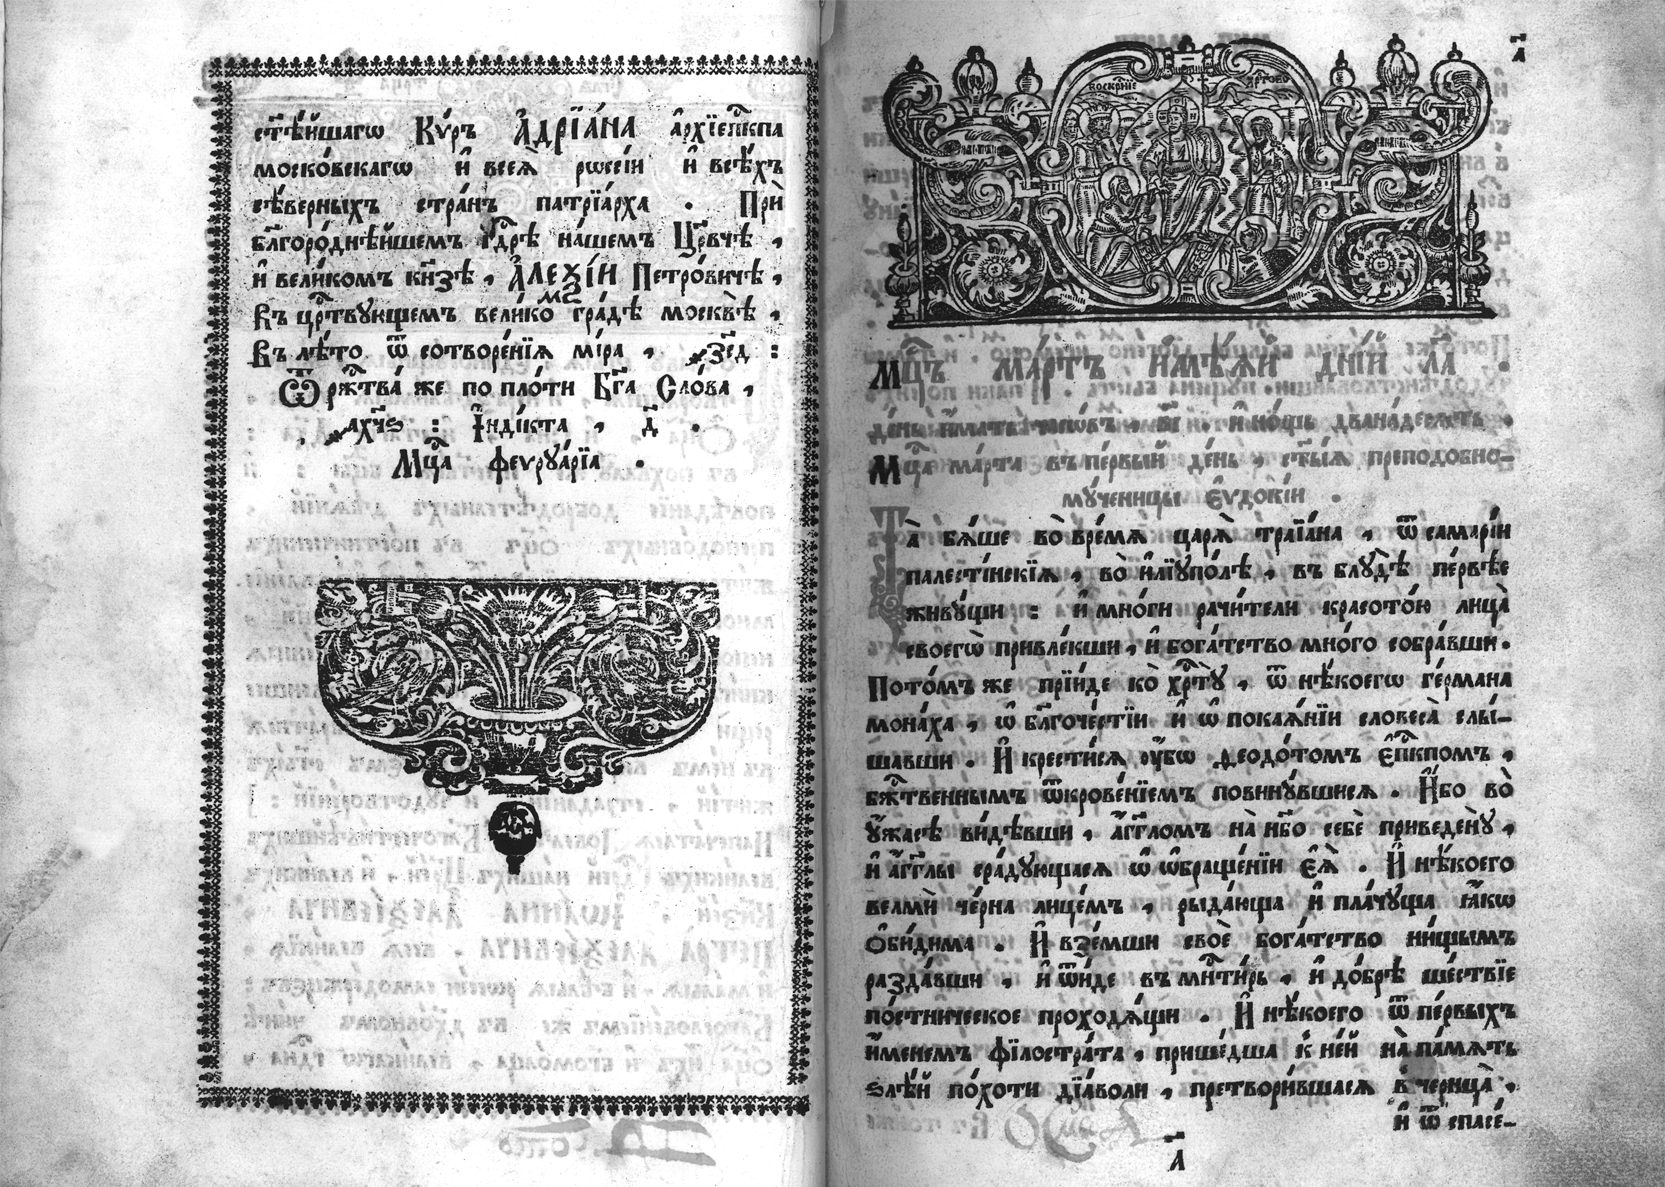 ст҃ѣ́йшагѡ Кѵ́ръ А҆дрїа́на а҆рхїеп҃кпа
моско́вскагѡ и҆ всеѧ̀ рѡссі́и и҆ всѣ́хъ
сѣ́верныхъ стра́нъ патрїа́рха . Прѝ
бл҃горо́днѣйшемъ гд҃рѣ на́шемъ Цр҃вчѣ ,
и҆ вели́комъ кн҃зѣ , А҆леѯі́и Петро́вичѣ ,
Въ цр҃твующемъ вели́комъ гра́дѣ москвѣ̀ ,
Въ лѣ́то ѿ сотворе́нїѧ мі́ра , ҂зс҃д :
Ѿ рж҃тва́ же по пло́ти Бг҃а Сло́ва ,
҂ахч҃ѕ : І҆нді́кта , д҃ .
Мц҃а феѵруа́рїа .
а҃
воскрⷭ҇нїе хрⷭ҇тово
Мц҃ъ ма́ртъ и҆мѣ́ѧй дні́й л҃а .
де́нь и҆́мать часѡ́въ , в҃і . и҆ но́щь двана́десѧть .
Мц҃а ма́рта въ пе́рвый де́нь , ст҃ы́ѧ преподобно-
му́ченицы є҆ѵдокі́и .
Та̀ бѧ́ше во вре́мѧ царѧ̀ траїа́на , ѿ самарі́и
палести́нскїѧ , во и҆лїу́полѣ , въ блу́дѣ пе́рвѣе
живу́щи : и҆ мно́ги рачи́тели красото́ю лица̀
своегѡ̀ привле́кши , и҆ бога́тство мно́го собра́вши .
Пото́мъ же прїи́де ко хр҃ту̀ , ѿ нѣ́коегѡ ге́рмана
мона́ха , ѡ҆ бл҃гоче́стїи и҆ ѡ҆ покаѧ́нїи словеса̀ слы́-
шавши . И҆ крести́сѧ ᲂу҆́бѡ ѳеодо́томъ є҆п҃кпомъ ,
бж҃твеннымъ ѿкрове́нїемъ повину́вшисѧ . И҆́бо во
ᲂу҆́жасѣ ви́дѣвши , а҆́гг҃ломъ на нб҃о себѐ приведе́ну ,
и҆ а҆́гг҃лы сра́дующаѧсѧ ѡ҆ ѡ҆браще́нїи є҆ѧ̀ . И҆ нѣ́коего
велмѝ че́рна лице́мъ , рыда́юща и҆ пла́чуща ꙗ҆́кѡ
ѻ҆би́дима . И҆ взе́мши своѐ бога́тство ни́щымъ
разда́вши , и҆ ѿи́де въ мн҃ти́рь , и҆ до́брѣ ше́ствїе
по́стническое проходѧ́щи . И҆ нѣ́коего ѿ пе́рвыхъ
и҆́менемъ фїлостра́та , прише́дша к не́й на па́мѧть
ѕлѣ́й по́хоти дїа́воли , претвори́вшаѧсѧ в черица̀ ,
и҆ ѿ спасе́-
а҃